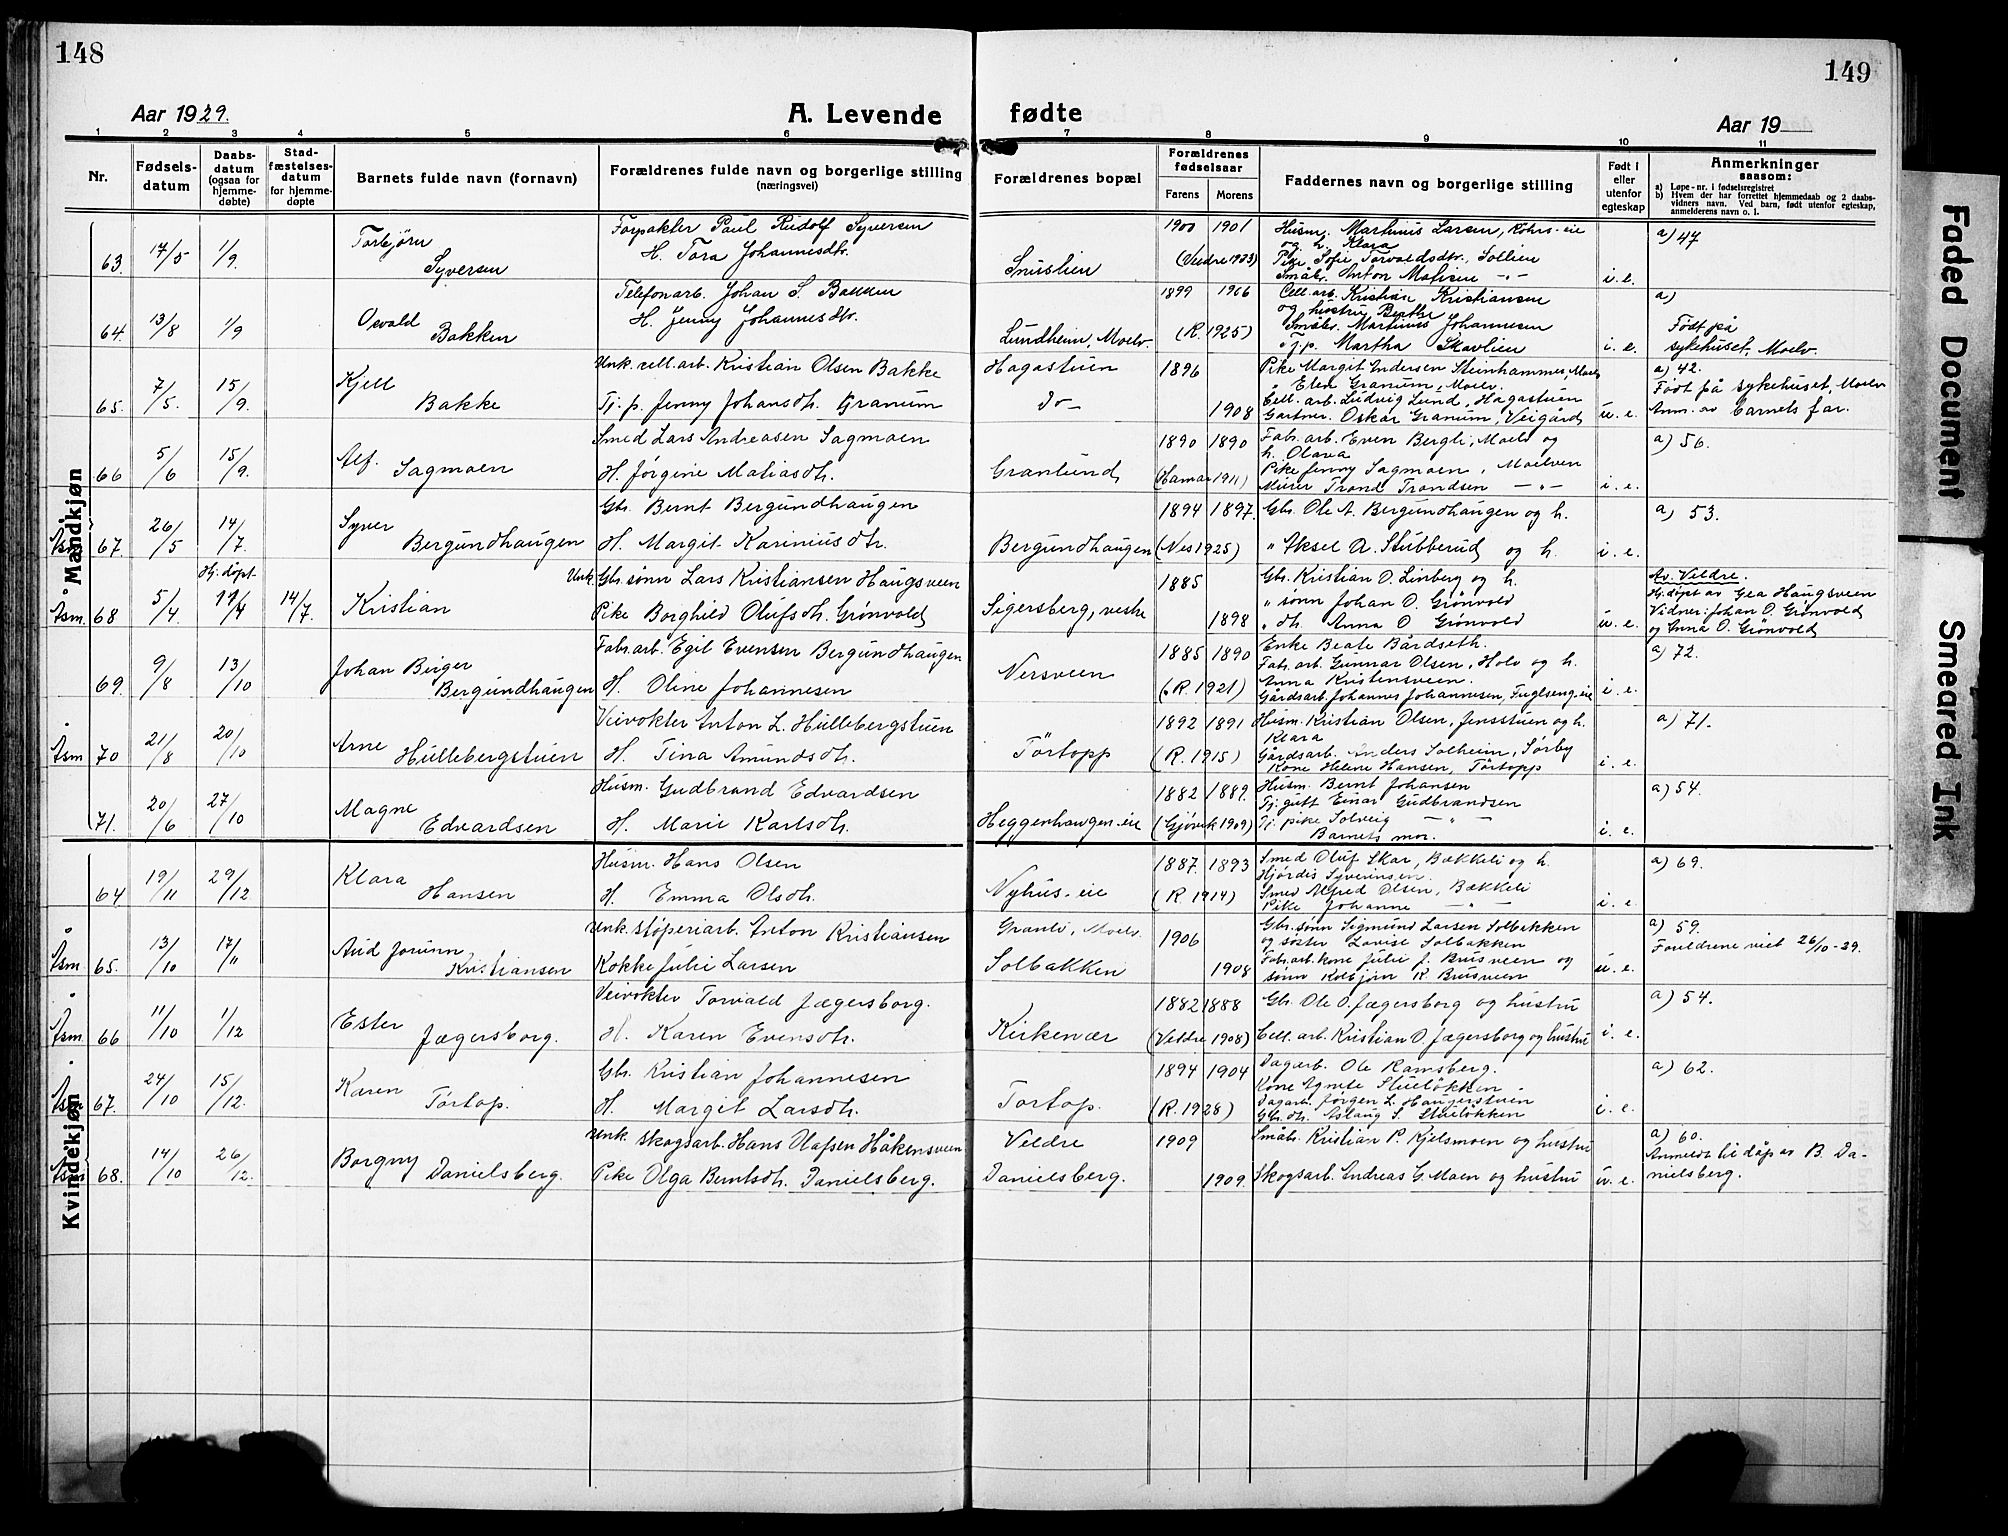 148
149
Aar 1929.
A. Levende fødte
Aar 19
1 2 3 4 5 6 7 8 9 10 11
Nr.
Fødsels-datum
Daabs-datum (ogsaa for hjemme-døbte)
Stad-fæstelses-datum for hjemme-døpte
Barnets fulde navn (fornavn)
Forældrenes fulde navn og borgerlige stilling (næringsvei)
Forældrenes bopæl
Forældrenes fødselsaar
Farens Morens
Faddernes navn og borgerlige stilling
Født i eller utenfor egteskap
Anmerkninger saasom:
a) Løpe-nr. i fødselsregistret
b) Hvem der har forrettet hjemmedaab og 2 daabs-vidners navn. Ved barn, født utenfor egteskap, anmelderens navn o. l.
Mandkjøn
63. 17/5 1/9. Torbjörn Syversen
Forpakter Paul Rudolf Syversen
H. Tora Johannesdtr.
Snuslien
1900 1901
(Veldre 1923)
Husm. Martinus Larsen, Kohrs-eie
og h. Klara
Pike Sofie Torvaldsdtr., Sollien
Småbr. Anton Matisen -"-
i. e.
a) 47
64. 13/8 1/9 Osvald Bakken
Telefonarb. Johan S. Bakken
H. Jenny Johannesdtr.
Lundheim, Moelv.
1899 1906
(R. 1925)
Cell. arb. Kristian Kristiansen
og hustru Berthe
Småbr. Martinus Johannesen
Tj.p. Martha Skavlien
i. e.
a)
Født på
sykehuset, Moelv.
65. 7/5. 15/9. Kjell Bakke
Unk. cell. arb. Kristian Olsen Bakke
Tj. p. Jenny Johansdtr. Granum
Hagastuen
do -
1896
1908
Pike Margit Andersen Steinhammer, Moelv
" Elen Granum, Moelv.
Cell. arb. Ludvig Lund, Hagastuen
Gartner. Oskar Granum, Veigård
u. e.
a) 42.
Født på sykehuset, Moelv
Anm. av barnets far.
66 5/6 15/9. Alf. Sagmoen
Smed Lars Andreasen Sagmoen
H. Jørgine Matiasdtr.
Granlund
1890 1890
(Hamar 1911)
Fabr. arb. Even Bergli, Moelv og
h. Olava
Pike Jenny Sagmoen, Moelven
Murer Trond Trondsen -"-
i. e.
a) 56.
Åsm 67. 26/5 14/7. Syver Bergundhaugen
Gbr. Bernt Bergundhaugen
H. Margit Kariniusdtr.
Bergundhaugen
1894 1897.
(Nes 1925)
Gbr. Ole A. Bergundhaugen og h.
" Aksel A. Stubberud og h.
i. e.
a) 53.
Åsm. 68 5/4. Hj. døpt 11/4 14/7. Kristian
Unk. Gbr. sønn Lars Kristiansen Haugsveen
Pike Borghild Olufsdtr. Grønvold
Sigersberg, vestre
1885
1898
Gbr. Kristian O. Linberg og h.
" sønn Johan O. Grønvold
" dtr. Anna O Grønvold
u. e.
Av. Veldre.
Hj. døpt av Gea Haugsveen
Vidner: Johan O. Grønvold
og Anna O. Grönvold
69. 9/8 13/10 Johan Birger Bergundhaugen
Fabr. arb. Egil Evensen Bergundhaugen
H. Oline Johannesen
Nersveen
1885 1890
(R. 1921)
Enke Beate Bårdseth.
Fabr. arb. Gunnar Olsen, Holo og h.
Anna Kristensveen.
Gårdsarb. Johannes Johannesen, Fuglseng-eie
i. e.
a) 72.
Åsm 70 21/8 20/10 Arne Hullebergstuen
Veivokter Anton L. Hullebergstuen
H. Tina Amundsdtr.
Törtopp
1892 1891
(R. 1915)
Husm. Kristian Olsen, Jensstuen og h.
Klara
Gårdsarb. Anders Solheim, Sørby
Kone Helene Hansen, Törtopp
i. e.
a) 71.
71. 20/6 27/10 Magne Edvardsen
Husm. Gudbrand Edvardsen
H. Marie Karlsdtr.
Heggenhaugen-eie
1882 1889.
(Gjövik 1909)
Husm. Bernt Johansen
Tj. gutt Einar Gudbrandsen
Tj. pike Solveig -"-
Barnets mor.
i. e.
a) 54.
Kvindekjøn
64 19/11 29/12. Klara Hansen
Husm. Hans Olsen
H. Emma Olsdtr.
Nyhus-eie
1887. 1893
(R 1914)
Smed Oluf Skar, Bækkeli og h.
Hjørdis Syverinsen.
Smed Alfred Olsen, Bækkeli
Pike Johanne -"-
i. e.
a) 69.
Åsm 65. 13/10 17/11 Aud Jorunn Kristiansen
Unk. støperiarb. Anton Kristiansen
Kokke Julie Larsen
Granli, Moelv.
Solbakken
1906
1908
Gbr. sønn Sigmund Larsen Solbakken
og søster Lovise Solbakken
Fabr. arb. kone Julie J. Brusveen og
sønn Kolbjørn K. Brusveen
u. e.
a) 59.
Foreldrene viet 26/10-29.
Åsm. 66 11/10 1/12 Ester Jægersborg.
Veivokter Torvald Jægersborg.
H. Karen Evensdtr.
Kirkenær
1882 1888
(Veldre 1908)
Gbr. Ole O. Jægersborg og hustru
Cell. arb. Kristian O. Jægersborg og hustru
i. e.
a) 54.
Åsm 67. 24/10 15/12. Karen Törtop.
Gbr. Kristian Johannesen
H. Margit Larsdtr.
Tortop.
1894 1904
(R. 1928)
Dagarb. Ole Ramsberg.
Kone Agnete Stueløkken
Dagarb. Jørgen L. Haugerstuen
Gbr. dtr. Aslaug S. Stueløkken
i. e.
a) 62.
Åsm 68. 14/10 26/12. Borgny Danielsberg.
Unk. skogsarb. Hans Olafsen Håkensveen
Pike Olga Berntsdtr. Danielsberg.
Veldre
Danielsberg.
1909
1909.
Småbr. Kristian P. Kjelsmoen og hustru
Skogsarb. Andreas G. Moen og hustru
u. e.
a) 60.
Anmeldt til dåp av B. Da-
nielsberg.
Faded Document
Smeared Ink